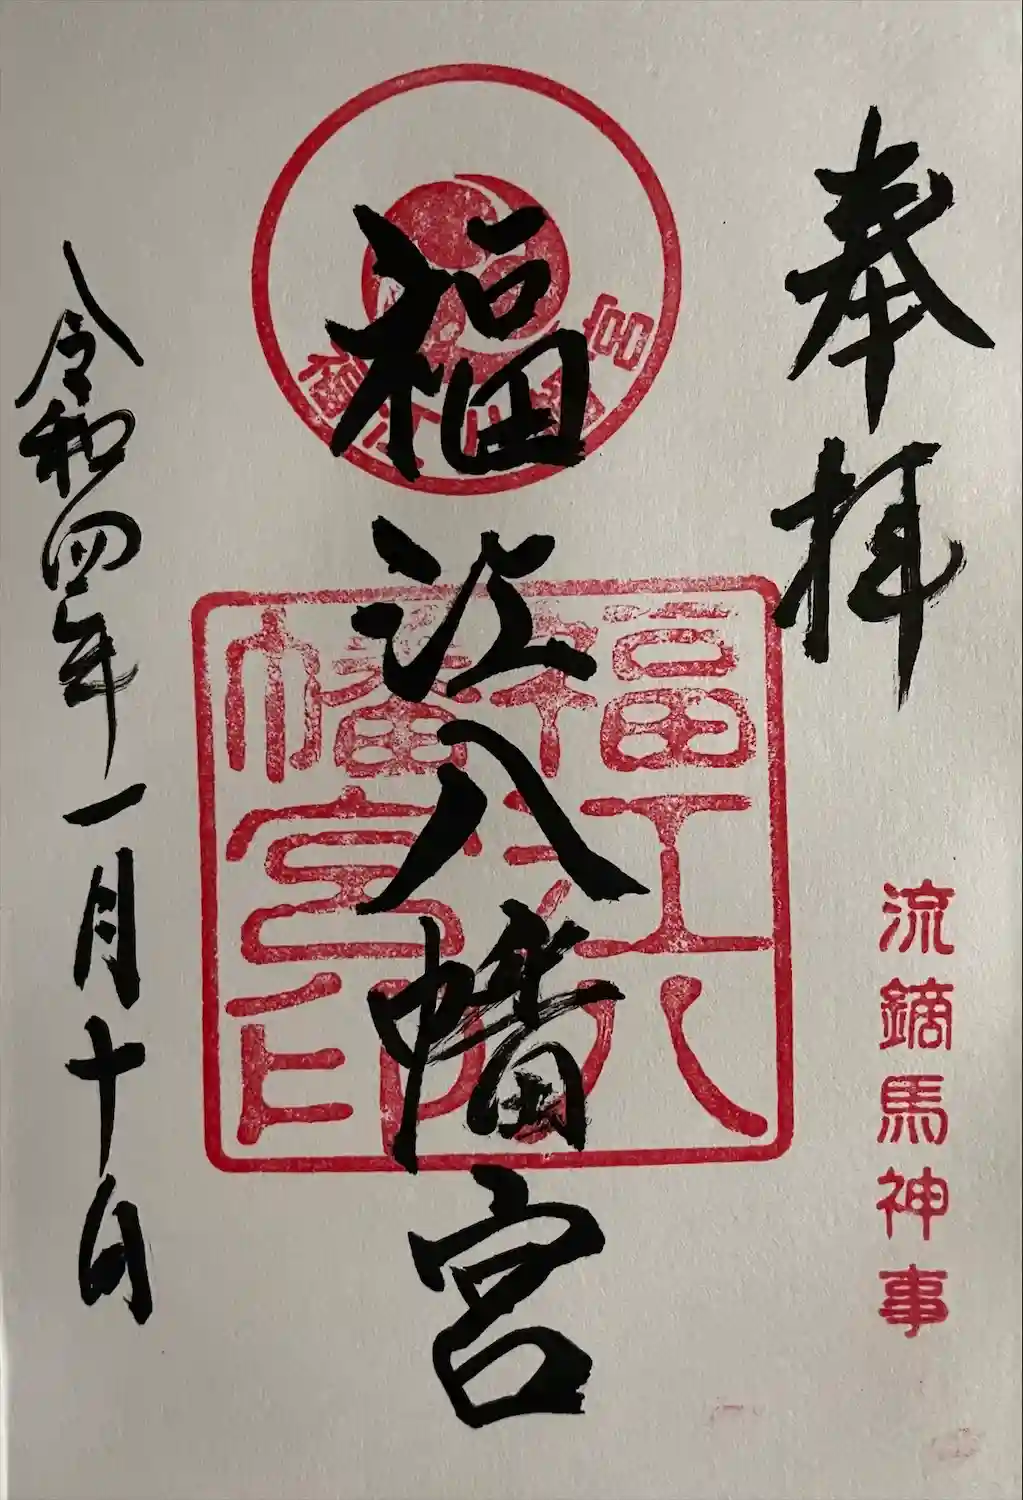 奉拝
流鏑馬神事
福江八幡宮
福江八幡宮印
令和四年一月十日